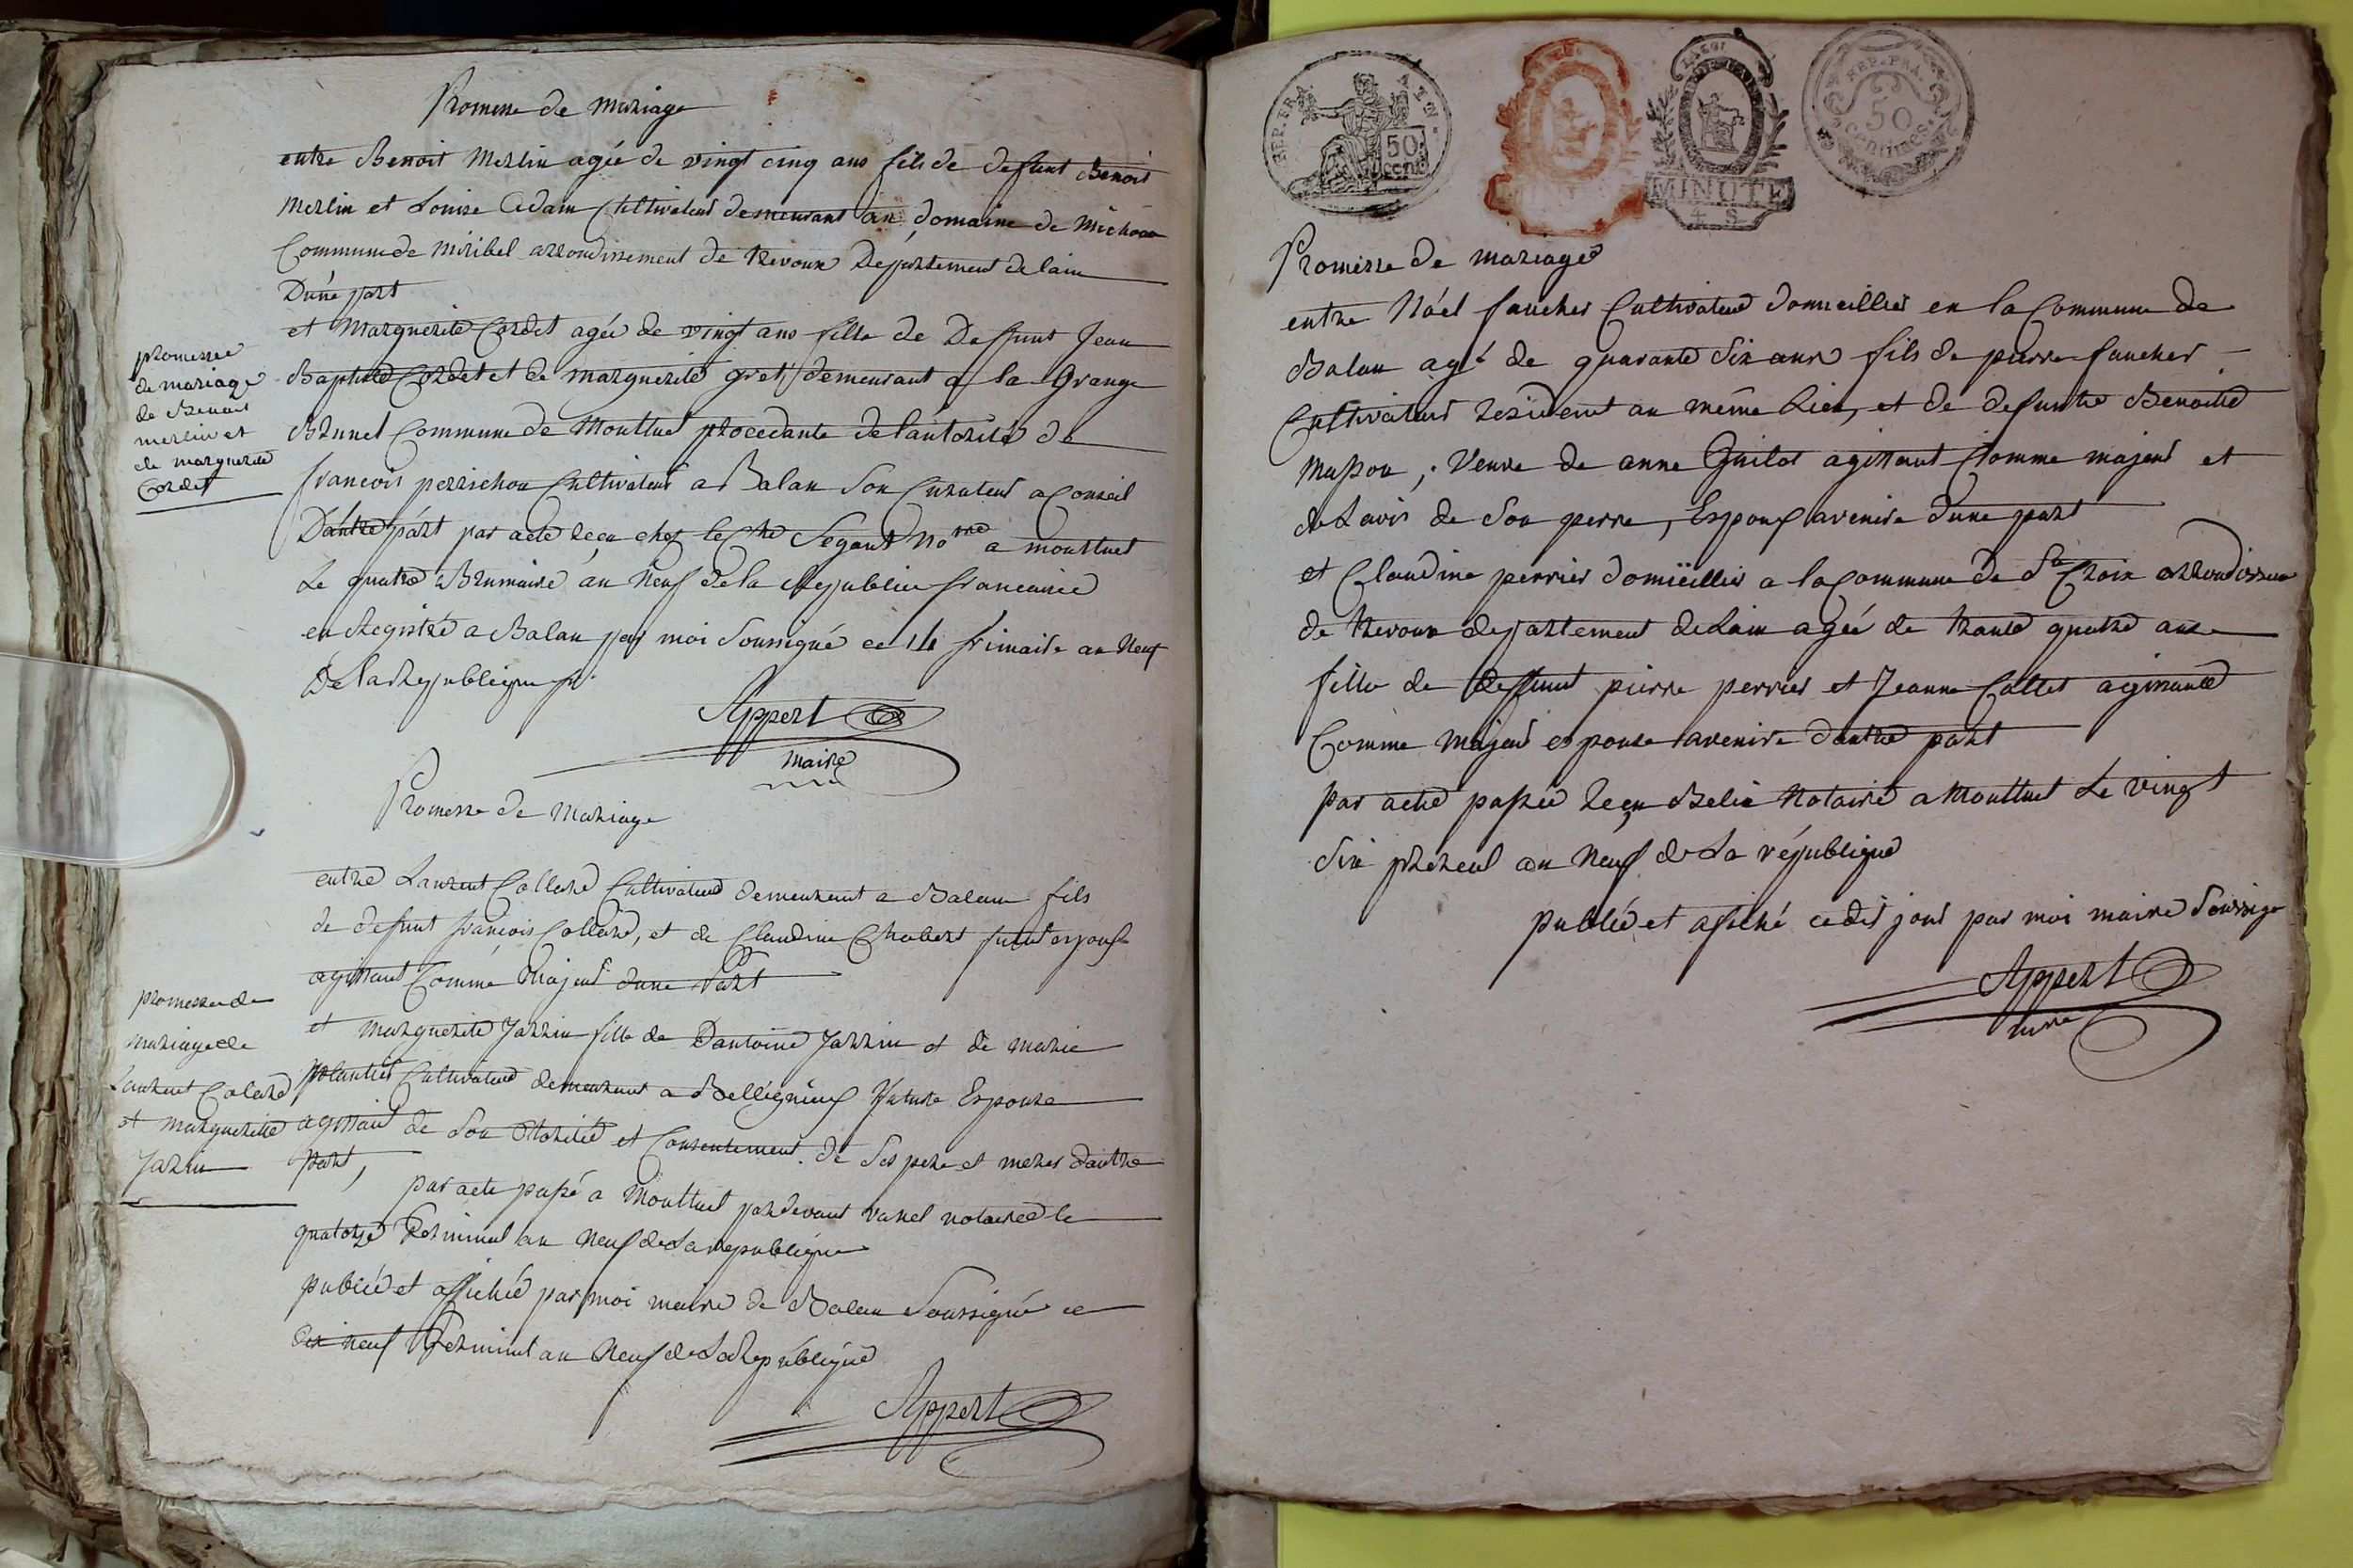 Promesse de mariage
entre Benoit Merlin agée de vingt cinq ans fils de defunt Benoit
Merlin et Louise Adam Cultivateur demeurant au domaine de
Commune de Miribel arrondissement de trevoux Departement de lain
Dune part
et Marguerite Cordet agée de vingt ans fille de Deffunt Jean
Baptiste Cordet et de marguerite gret demeurant a la Grange
Brunet Commune de Montluel procedante de lautorité de
françois perrichon Cultivateur a Balan son Curateur a Conseil
Dautre part par acte reçu chez le Segaut Nore a montluel
Le quatre Brumaire an Neuf de la Republic francaisie
enregistré a Balan par moi Soussigné ce 14 frimaire an Neuf
De la Republique
Appert
maire
promesse
de mariage
de Benoit
merlin et
de marguerite
Cordet
Promesse de Mariage
entre Laurent Collard Cultivateur demeurent a Balan fils
de defunt françois Collard, et de Claudine Chabert futur espouse
agissant Comme Majeur dune Part
et Marguerite Jarrin fille de Dantoine Jarrin et de marie
plantier Cultivateur demeurant a Bellignieux future Espouse
agissant de Son et Consentement de Ses pere et meres dautre
part, par acte passé a Montluel pardevant vanel notaire le
quatorze Germinal an Neuf de La republique
publié et affiché par moi maire de Balan Soussigné ce
dix neuf Germinal an Neuf de La République
Appert
promesse de
mariage de
Laurent Colard
et margueritte
Jarrin
REP. FRA.
50
cent
MINUTE
4 S
REP. FRA.
50
centimes
Promesse de mariage
entre Nóel faucher Cultivateur domicillier en la Commune de
Balan agé de quarante Six ans fils de pierre faucher
Cultivateur residant au même Lieu, et de defunte Benoitte
Masson, Veuve de anne Guillot agissant Comme majeur et
de Lavis de Son perre, Espoux avenire dune part
et Claudine perrier domicillier a la Commune de Ste Croix arrondissem
de trevoux departement de Lain agée de trante quatre ans
fille de deffunt pierre perrier et Jeanne Collet agissante
Comme Majeur espouse avenire dautre part
par acte passée reçu Belie Notaire a Montluel Le vingt
Six an Neuf de La république
publié et afiché cedit jour par moi maire Soussigé
Appert